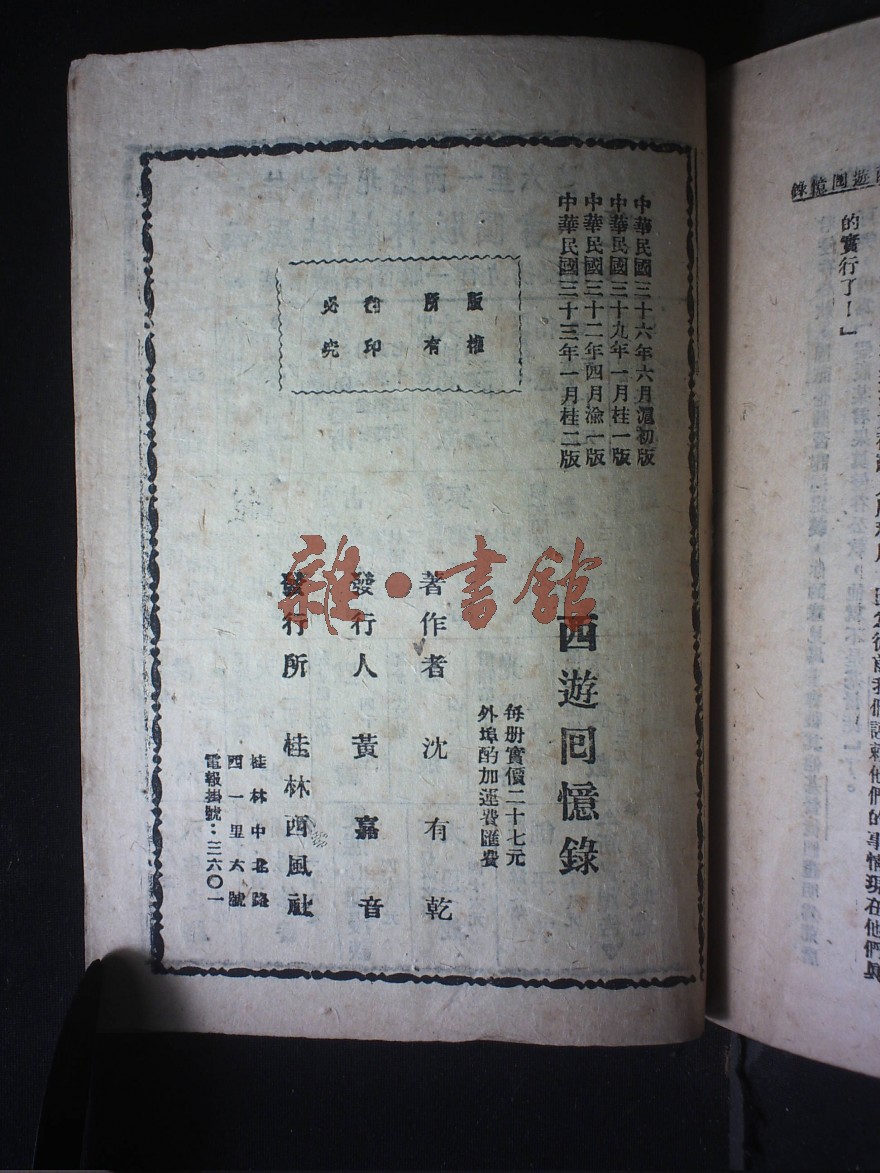 遊回憶錄
的實行了！」
中華民國三十六年六月滬初版
中華民國三十九年一月桂一版
中華民國三十二年四月渝一版
中華民國三十三年一月桂二版
版權
所有
翻印
必究
西遊回憶錄
每册實價二十七元
外埠酌加運費匯費
著作者 沈有乾
發行人 黃嘉音
發行所 桂林西風社
桂林中北路
西一里六號
電報掛號：三六〇一
雜·書館